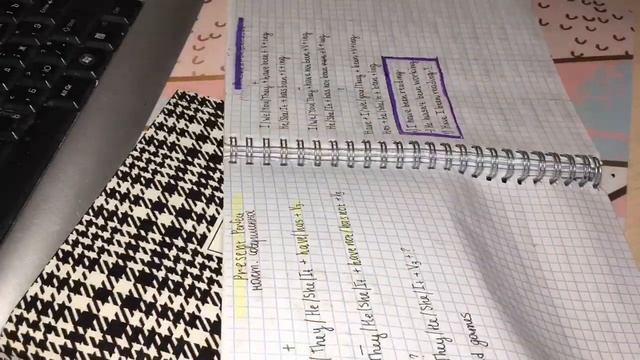 I/We/You/They + have been + V+ing
He/She/It + has been + V+ing
I/We/You/They + have not been + V+ing
He/She/It + has not been + V+ing
?
Have + I/we/you/they + been + V+ing
Has + he/she/it + been + ing
I have been reading
He hasn't been working
Have I been reading?
Present Perfect
наст.
+
/They/He/She/It + have/has + V3
−
They/He/She/It + have not/has not + V3
?
They/He/She/It + V3 + ?
games